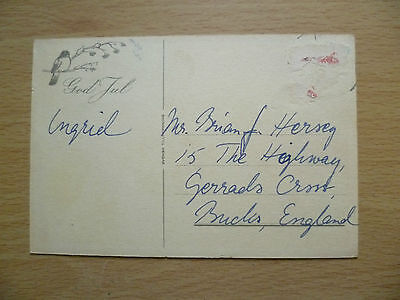 God Jul
Ingrid
Mr. Brian J. Hersey
15 The Highway,
Gerrads Cross,
Bucks, England